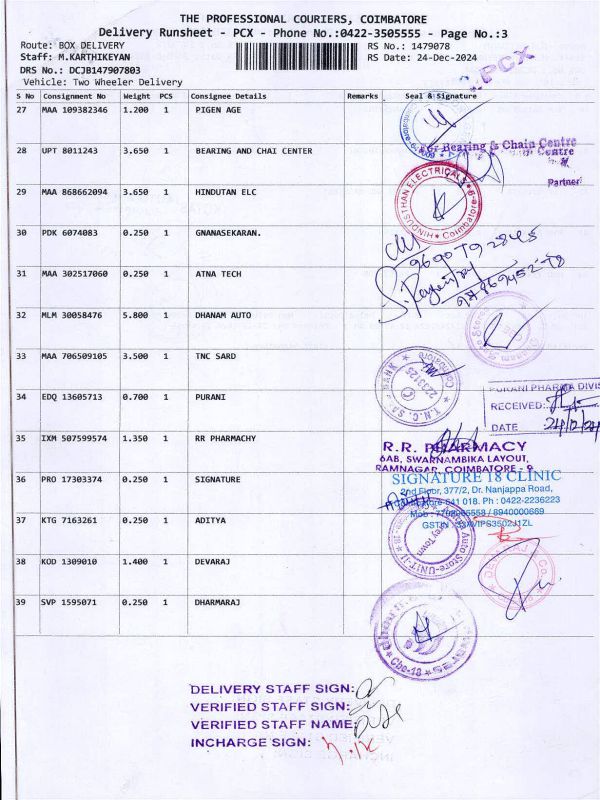 THE PROFESSIONAL COURIERS, COIMBATORE
Delivery Runsheet - PCX - Phone No.:0422-3505555 - Page No.:3
Route: BOX DELIVERY RS No.: 1479078
Staff: M.KARTHIKEYAN RS Date: 24-Dec-2024
DRS No.: DCJB147907803
Vehicle: Two Wheeler Delivery
PCX
S No Consignment No Weight PCS Consignee Details Remarks Seal & Signature
27 MAA 109382346 1.200 1 PIGEN AGE
28 UPT 8011243 3.650 1 BEARING AND CHAI CENTER
Bearing & Chain Centre
Centre
Partner
29 MAA 868662094 3.650 1 HINDUTAN ELC
HINDUSTHAN ELECTRICALS
Coimbatore
30 PDK 6074083 0.250 1 GNANASEKARAN.
31 MAA 302517060 0.250 1 ATNA TECH
32 MLM 30058476 5.800 1 DHANAM AUTO
33 MAA 706509105 3.500 1 TNC SARD
Coimbatore
34 EDQ 13605713 0.700 1 PURANI
PURANI PHARMA DIVIS
RECEIVED:
DATE
35 IXM 507599574 1.350 1 RR PHARMACHY
R.R. PHARMACY
6AB, SWARNAMBIKA LAYOUT,
RAMNAGAR, COIMBATORE - 9
36 PRO 17303374 0.250 1 SIGNATURE
SIGNATURE 18 CLINIC
2nd Floor, 377/2, Dr. Nanjappa Road,
641 018. Ph : 0422-2236223
37 KTG 7163261 0.250 1 ADITYA
Auto Store-UNIT-II
38 KOD 1309010 1.400 1 DEVARAJ
39 SVP 1595071 0.250 1 DHARMARAJ
Cbe-18
DELIVERY STAFF SIGN:
VERIFIED STAFF SIGN:
VERIFIED STAFF NAME:
INCHARGE SIGN: